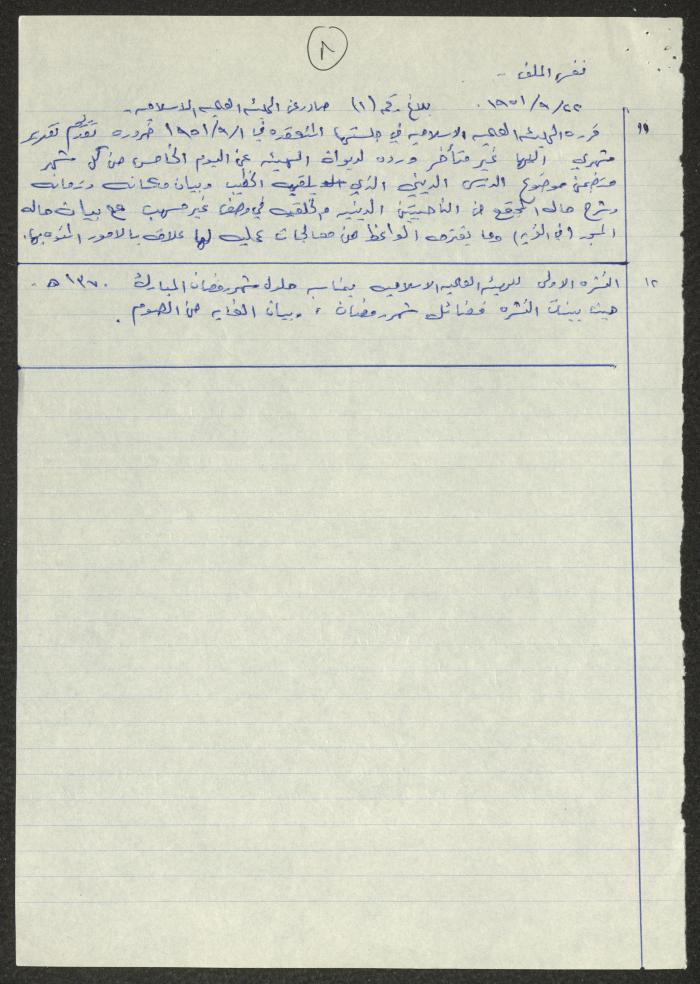 ٨
نفس الملف -
٢٢/٩/١٩٥١. بلاغ رقم (١) صادر عن الهيئة العلمية الاسلامية -
١١ قررت الهيئة العلمية الاسلامية في جلستها المنعقدة في ١/٩/١٩٥١ ضرورة تقديم تقرير
شهري اليها غير متأخر وروده لديوان الهيئة عن اليوم الخامس من كل شهر
متضمن موضوع الدرس الديني الذي يلقيه الخطيب وبيان مكانه وزمانه
وشرح حالة المجتمع من الناحيتين الدينيه والخلقيه في وصف غير مسهب مع بيان حالة
المسجد (في القرية) وما يقترحه الواعظ من معالجات عمليه لها علاقة بالامور المنوه بها.
١٢ النشره الاولى للهيئة العلميه الاسلاميه بمناسبة حلول شهر رمضان المبارك ١٣٧٠ هـ -
حيث بينت النشره فضائل شهر رمضان ، وبيان الغايه من الصوم .